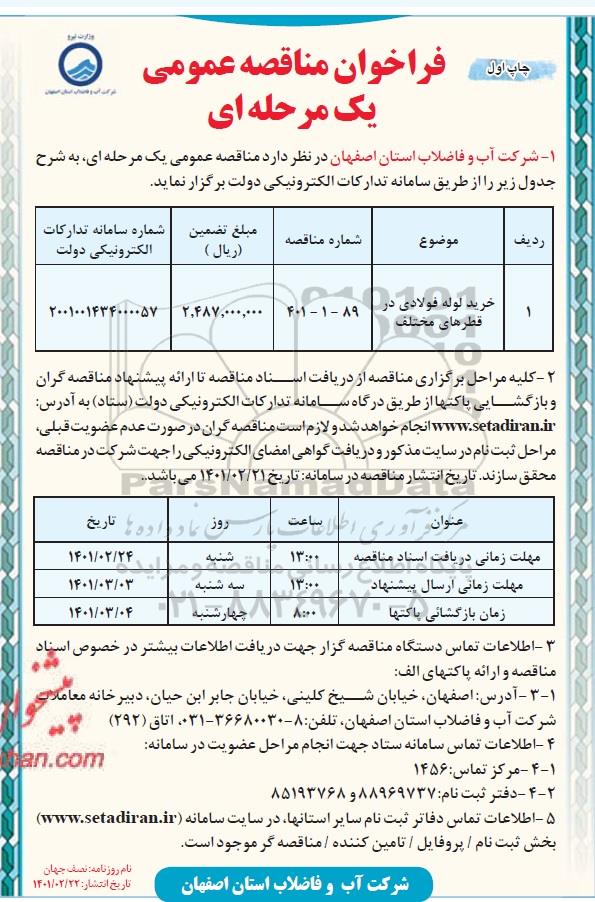 وزارت نیرو
شرکت آب و فاضلاب استان اصفهان
چاپ اول
فراخوان مناقصه عمومی
یک مرحله ای
۱- شرکت آب و فاضلاب استان اصفهان در نظر دارد مناقصه عمومی یک مرحله ای، به شرح
جدول زیر را از طریق سامانه تدارکات الکترونیکی دولت برگزار نماید.
ردیف موضوع شماره مناقصه مبلغ تضمین (ریال) شماره سامانه تدارکات الکترونیکی دولت
۱ خرید لوله فولادی در قطرهای مختلف ۸۹ - ۱ - ۴۰۱ ۲,۴۸۷,۰۰۰,۰۰۰ ۲۰۰۱۰۰۱۴۳۴۰۰۰۰۵۷
۲ -کلیه مراحل برگزاری مناقصه از دریافت اسناد مناقصه تا ارائه پیشنهاد مناقصه گران
و بازگشایی پاکتها از طریق درگاه سامانه تدارکات الکترونیکی دولت (ستاد) به آدرس:
www.setadiran.ir انجام خواهد شد و لازم است مناقصه گران در صورت عدم عضویت قبلی،
مراحل ثبت نام در سایت مذکور و دریافت گواهی امضای الکترونیکی را جهت شرکت در مناقصه
محقق سازند. تاریخ انتشار مناقصه در سامانه: تاریخ ۱۴۰۱/۰۲/۲۱ می باشد..
ParsNamadData
مرکز فن آوری اطلاعات پارس نماد داده ها
عنوان ساعت روز تاریخ
مهلت زمانی دریافت اسناد مناقصه ۱۳:۰۰ شنبه ۱۴۰۱/۰۲/۲۴
پایگاه اطلاع رسانی مناقصه و مزایده
مهلت زمانی ارسال پیشنهاد ۱۳:۰۰ سه شنبه ۱۴۰۱/۰۳/۰۳
۰۲۱-۸۸۳۴۹۶۷۰-۵
زمان بازگشائی پاکتها ۸:۰۰ چهارشنبه ۱۴۰۱/۰۳/۰۴
۳ -اطلاعات تماس دستگاه مناقصه گزار جهت دریافت اطلاعات بیشتر در خصوص اسناد
مناقصه و ارائه پاکتهای الف:
۳-۱ -آدرس: اصفهان، خیابان شیخ کلینی، خیابان جابر ابن حیان، دبیرخانه معاملات
شرکت آب و فاضلاب استان اصفهان، تلفن: ۸-۳۶۶۸۰۰۳۰-۰۳۱، اتاق (۲۹۲)
۴ -اطلاعات تماس سامانه ستاد جهت انجام مراحل عضویت در سامانه:
۴-۱ -مرکز تماس: ۱۴۵۶
۴-۲ -دفتر ثبت نام: ۸۸۹۶۹۷۳۷ و ۸۵۱۹۳۷۶۸
۵ -اطلاعات تماس دفاتر ثبت نام سایر استانها، در سایت سامانه (www.setadiran.ir)
بخش ثبت نام / پروفایل / تامین کننده / مناقصه گر موجود است.
شرکت آب و فاضلاب استان اصفهان
نام روزنامه: نصف جهان
تاریخ انتشار: ۱۴۰۱/۰۲/۲۲